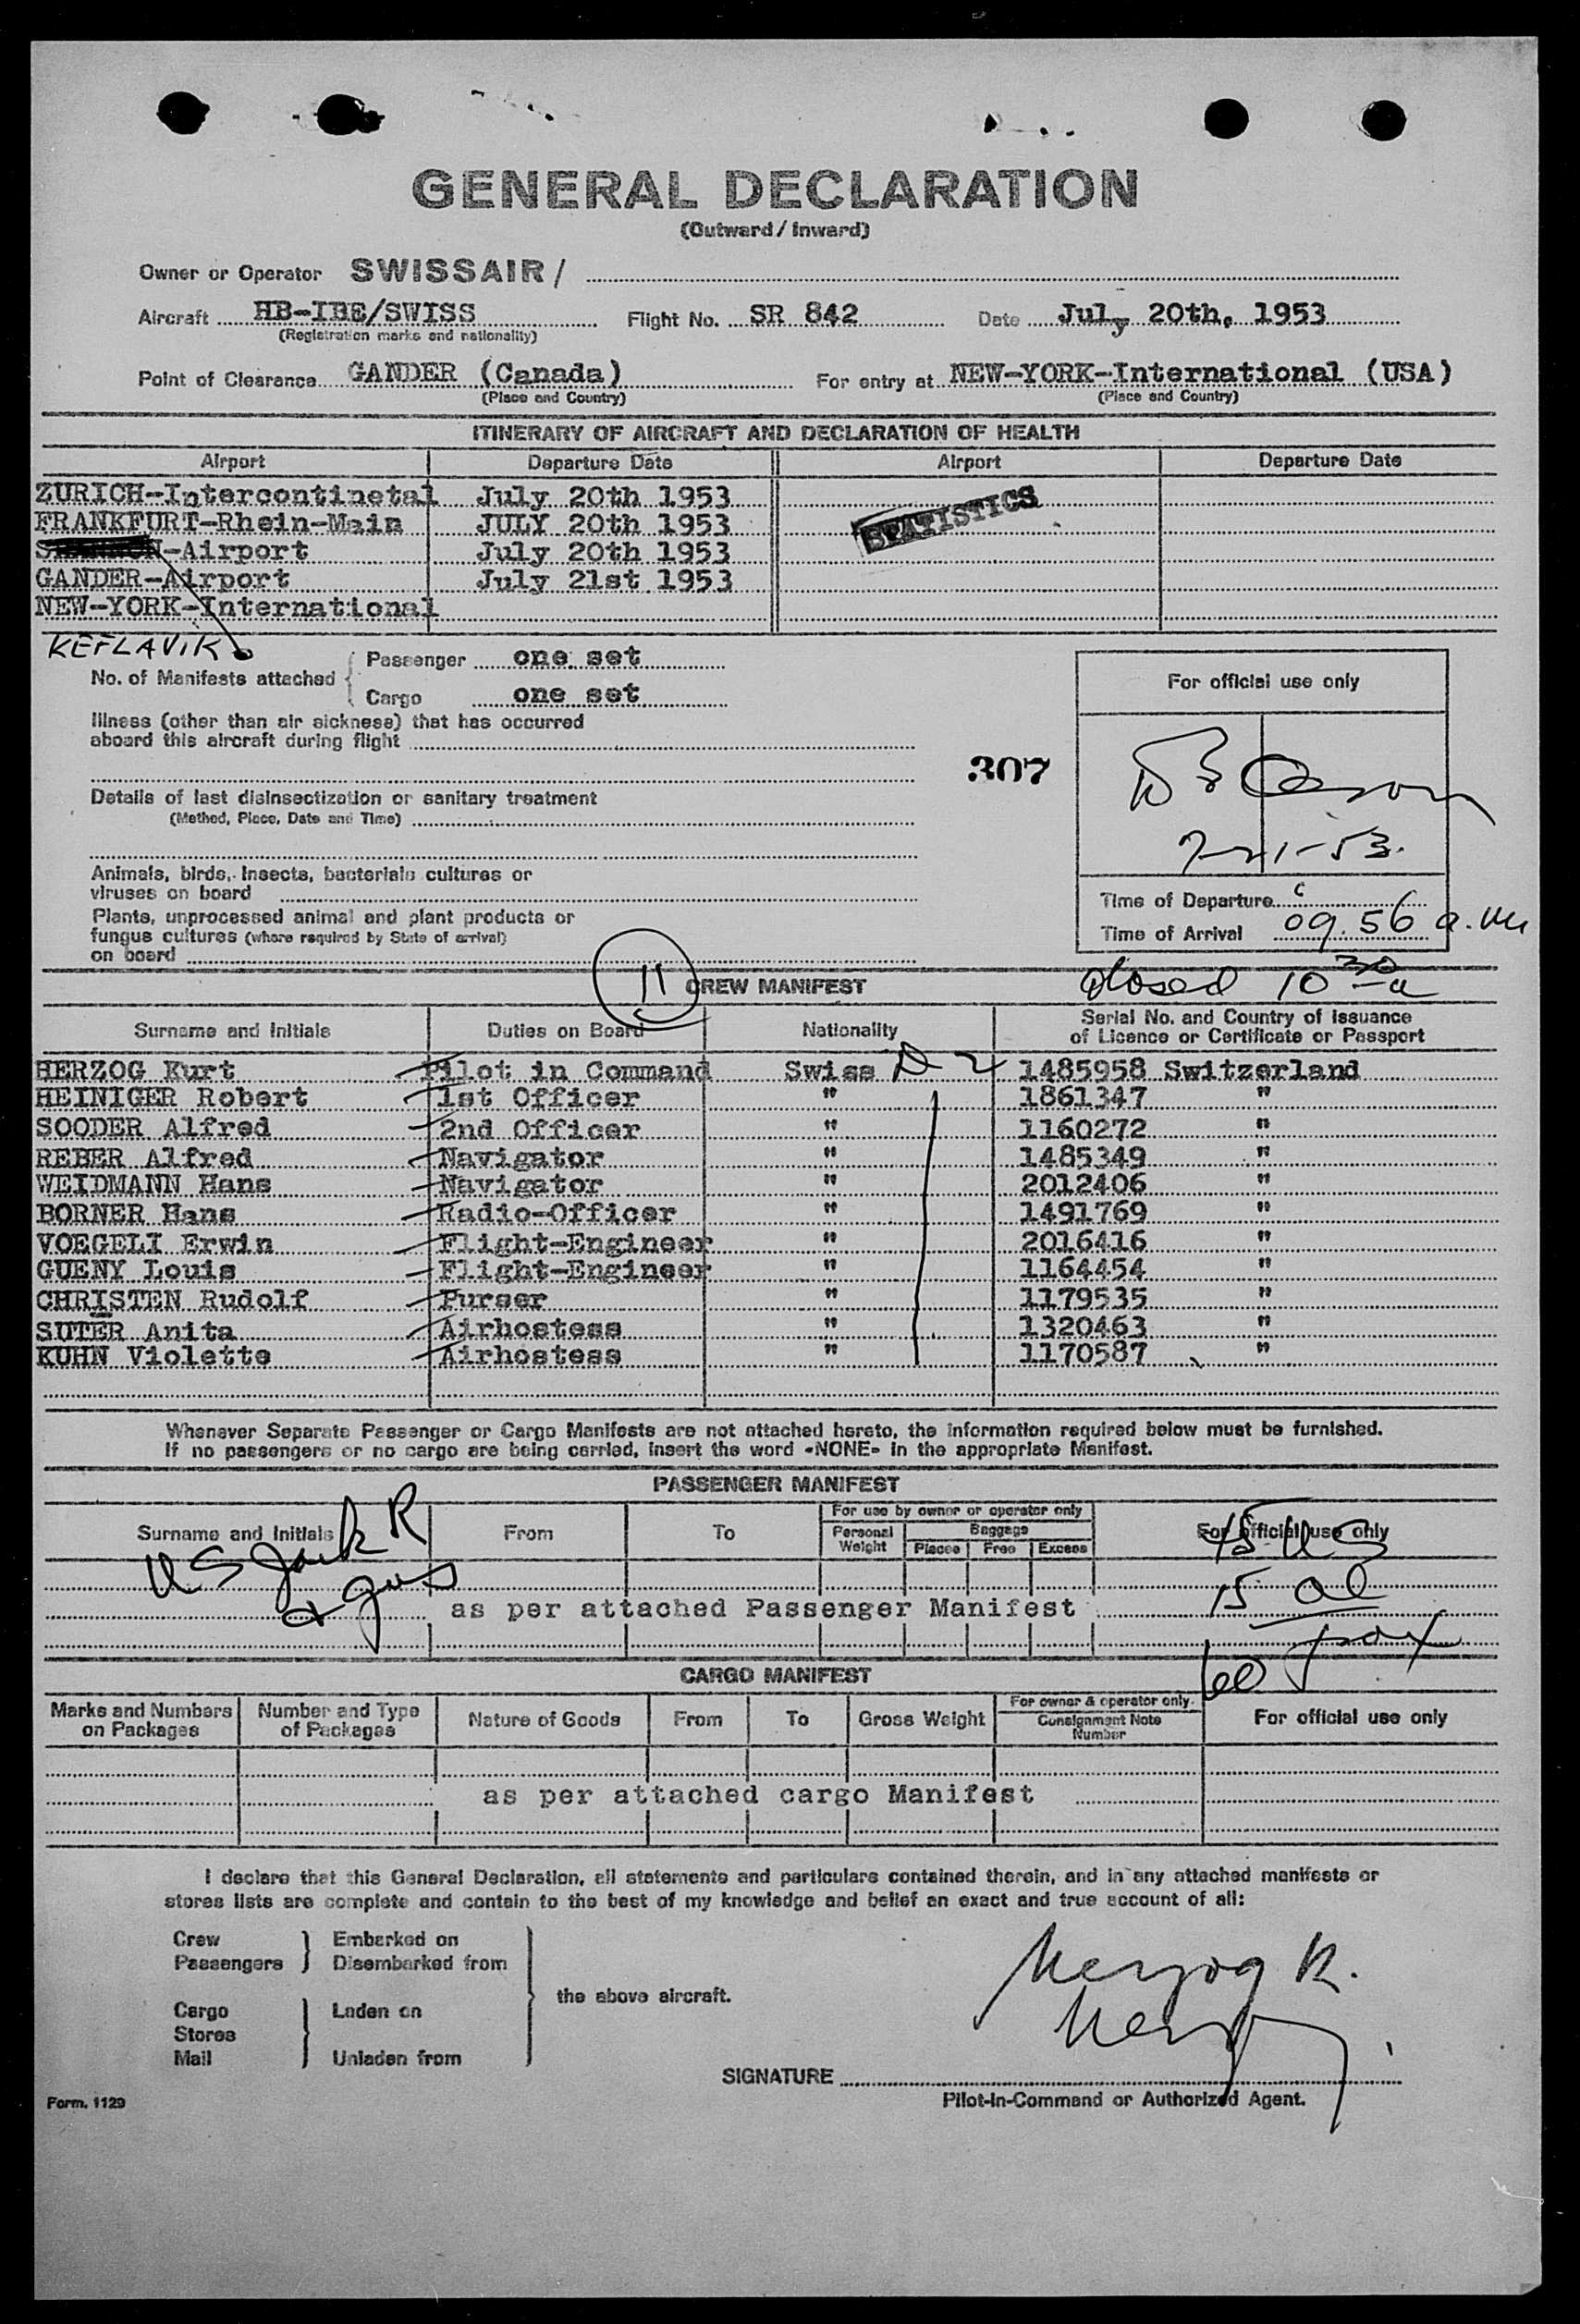 GENERAL DECLARATION
(Outward / Inward)
Owner or Operator SWISSAIR /
Aircraft HB-IBE/SWISS Flight No. SR 842 Date July 20th, 1953
(Registration marks and nationality)
Point of Clearance GANDER (Canada) For entry at NEW-YORK-International (USA)
(Place and Country) (Place and Country)
ITINERARY OF AIRCRAFT AND DECLARATION OF HEALTH
Airport Departure Date Airport Departure Date
ZURICH-Intercontinetal July 20th 1953
STATISTICS
FRANKFURT-Rhein-Main JULY 20th 1953
SHANNON-Airport July 20th 1953
GANDER-Airport July 21st 1953
NEW-YORK-International
KEFLAVIK
No. of Manifests attached
Passenger one set
Cargo one set
For official use only
Illness (other than air sickness) that has occurred
aboard this aircraft during flight
307
Details of last disinsectization or sanitary treatment
(Method, Place, Date and Time)
7-21-53.
Animals, birds, insects, bacterials cultures or
viruses on board
Plants, unprocessed animal and plant products or
fungus cultures (where required by State of arrival)
on board
Time of Departure
Time of Arrival 09.56 a.m
Closed 10 30 a
11
CREW MANIFEST
Surname and Initials Duties on Board Nationality Serial No. and Country of Issuance
of Licence or Certificate or Passport
HERZOG Kurt Pilot in Command Swiss 1485958 Switzerland
HEINIGER Robert 1st Officer " 1861347 "
SOODER Alfred 2nd Officer " 1160272 "
REBER Alfred Navigator " 1485349 "
WEIDMANN Hans Navigator " 2012406 "
BORNER Hans Radio-Officer " 1491769 "
VOEGELI Erwin Flight-Engineer " 2016416 "
GUENY Louis Flight-Engineer " 1164454 "
CHRISTEN Rudolf Purser " 1179535 "
SUTER Anita Airhostess " 1320463 "
KUHN Violette Airhostess " 1170587 "
Whenever Separate Passenger or Cargo Manifests are not attached hereto, the information required below must be furnished.
If no passengers or no cargo are being carried, insert the word «NONE» in the appropriate Manifest.
PASSENGER MANIFEST
Surname and Initials From To For use by owner or operator only For official use only
Personal Weight Baggage
Pieces Free Excess
45 US
15 al
60 pax
as per attached Passenger Manifest
CARGO MANIFEST
Marks and Numbers on Packages Number and Type of Packages Nature of Goods From To Gross Weight For owner & operator only. Consignment Note Number For official use only
as per attached cargo Manifest
I declare that this General Declaration, all statements and particulars contained therein, and in any attached manifests or
stores lists are complete and contain to the best of my knowledge and belief an exact and true account of all:
Crew Embarked on
Passengers Disembarked from
the above aircraft.
Cargo Laden on
Stores
Mail Unladen from
Herzog K.
Herzog
SIGNATURE
Pilot-in-Command or Authorized Agent.
Form. 1129